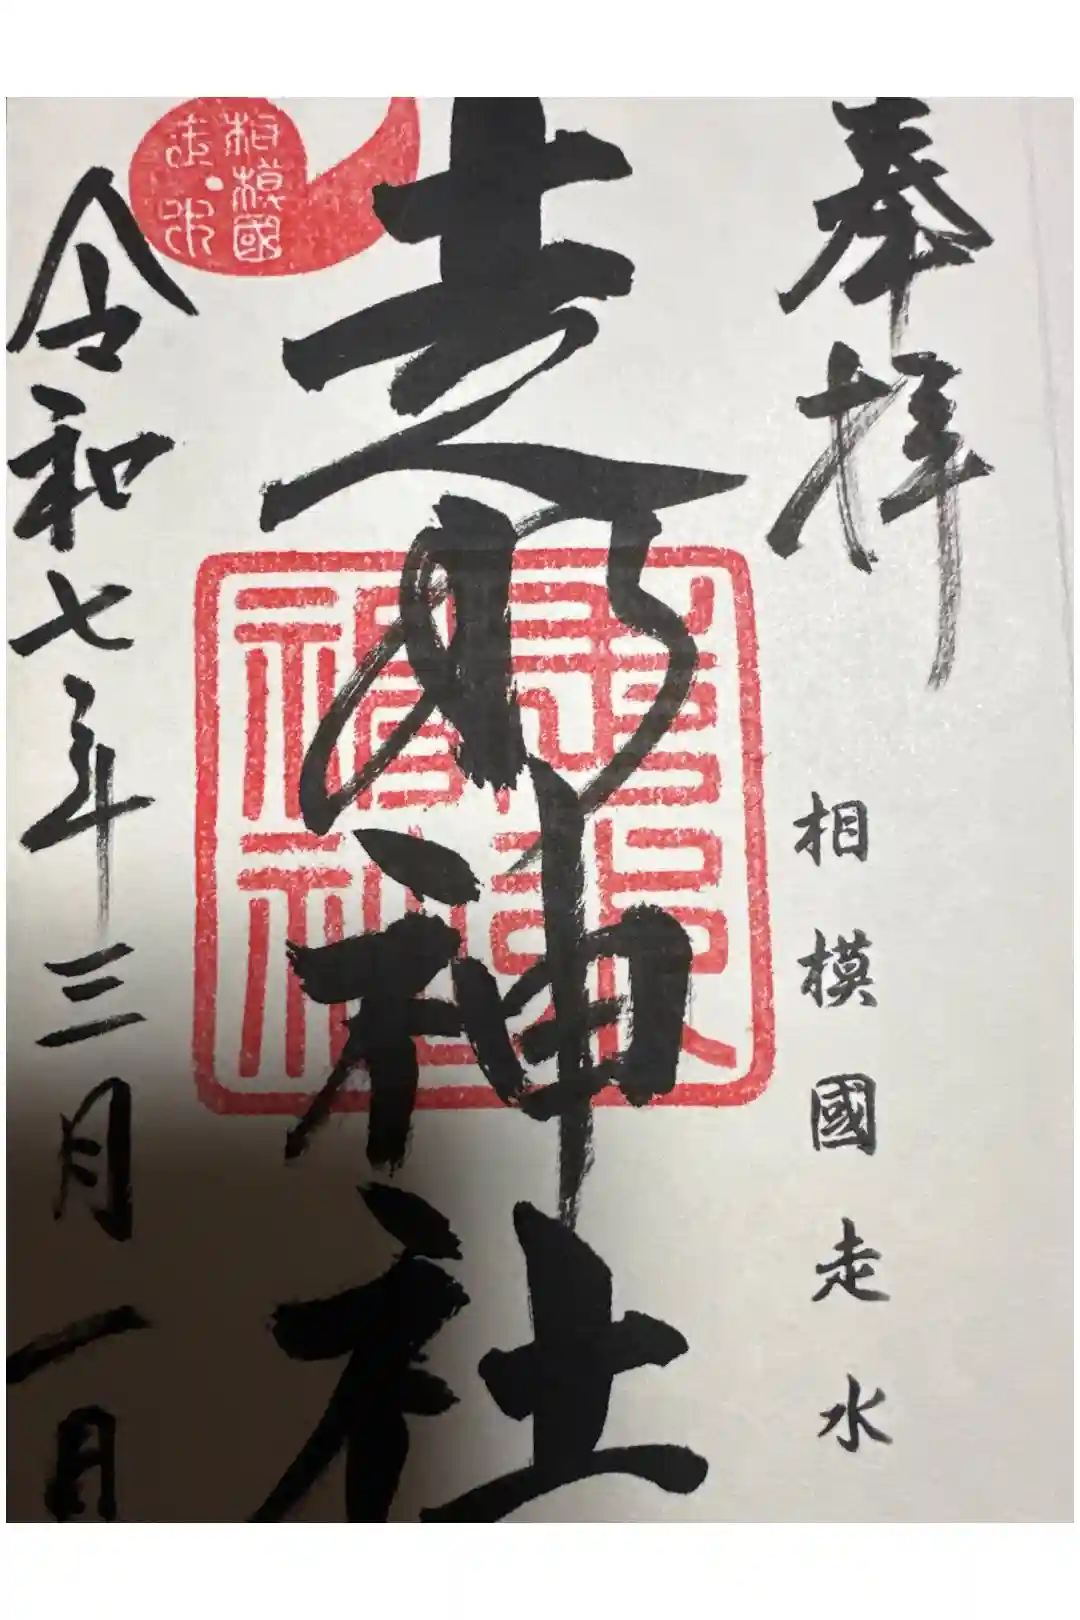 奉拝
相模國走水
走水神社
相模國
走水
令和七年三月一日